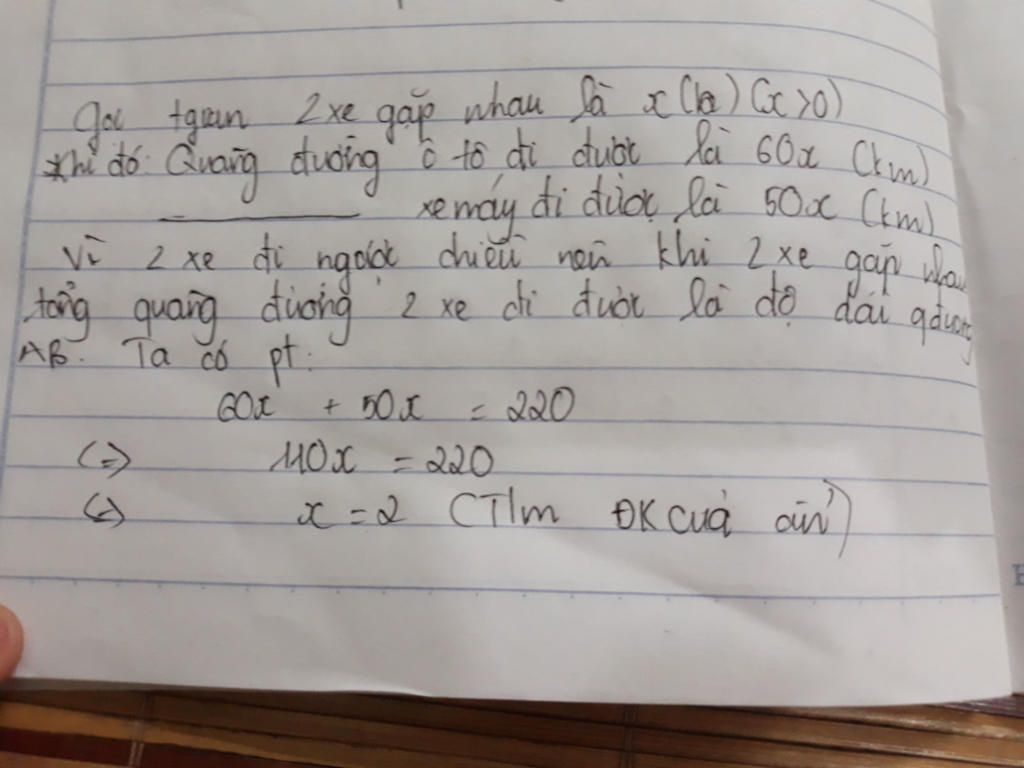 Gọi tgian 2 xe gặp nhau là x (h) (x > 0)
Khi đó: Quãng đường ô tô đi được là 60x (km)
xe máy đi được là 50x (km)
Vì 2 xe đi ngược chiều nên khi 2 xe gặp nhau
tổng quãng đường 2 xe đi được là độ dài qđường
AB. Ta có pt:
60x + 50x = 220
(=) 110x = 220
(=) x = 2 (T/m ĐK của ẩn)